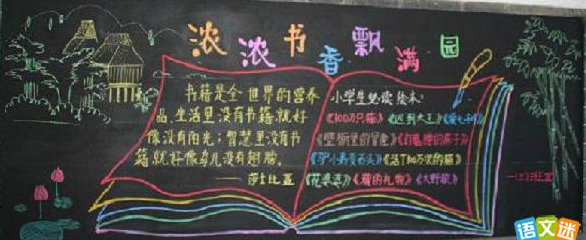 浓浓书香飘满园
书籍是全世界的营养
品.生活里没有书籍就好
像没有阳光;智慧里没有书
籍就好像鸟儿没有翅膀。
——莎士比亚
小学生必读绘本:
《100万只猫》《迟到大王》
《活了100万次的猫》
《花婆婆》《魔的礼物》《大野狼》
语文迷